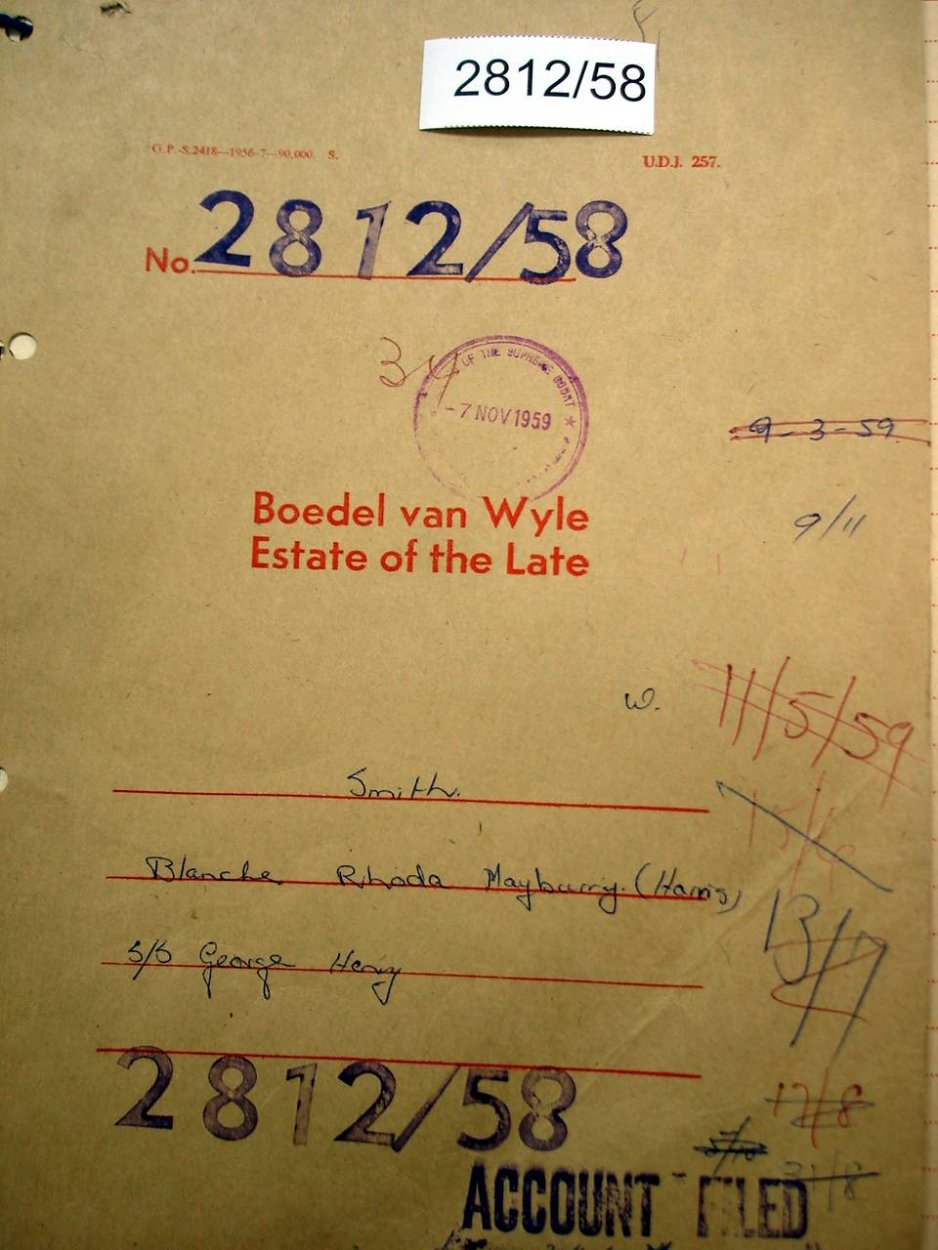 2812/58
G.P.-S.2418—1956-7—90,000. S.
U.D.J. 257.
No. 2812/58
34
OF THE SUPREME COURT
-7 NOV 1959
9-3-59.
9/11
Boedel van Wyle
Estate of the Late
w.
11/5/59
Smith.
Blanche Rhoda Mayburry. (Harris)
13/7
S/S George Henry
2812/58
17/8
31/8
ACCOUNT FILED